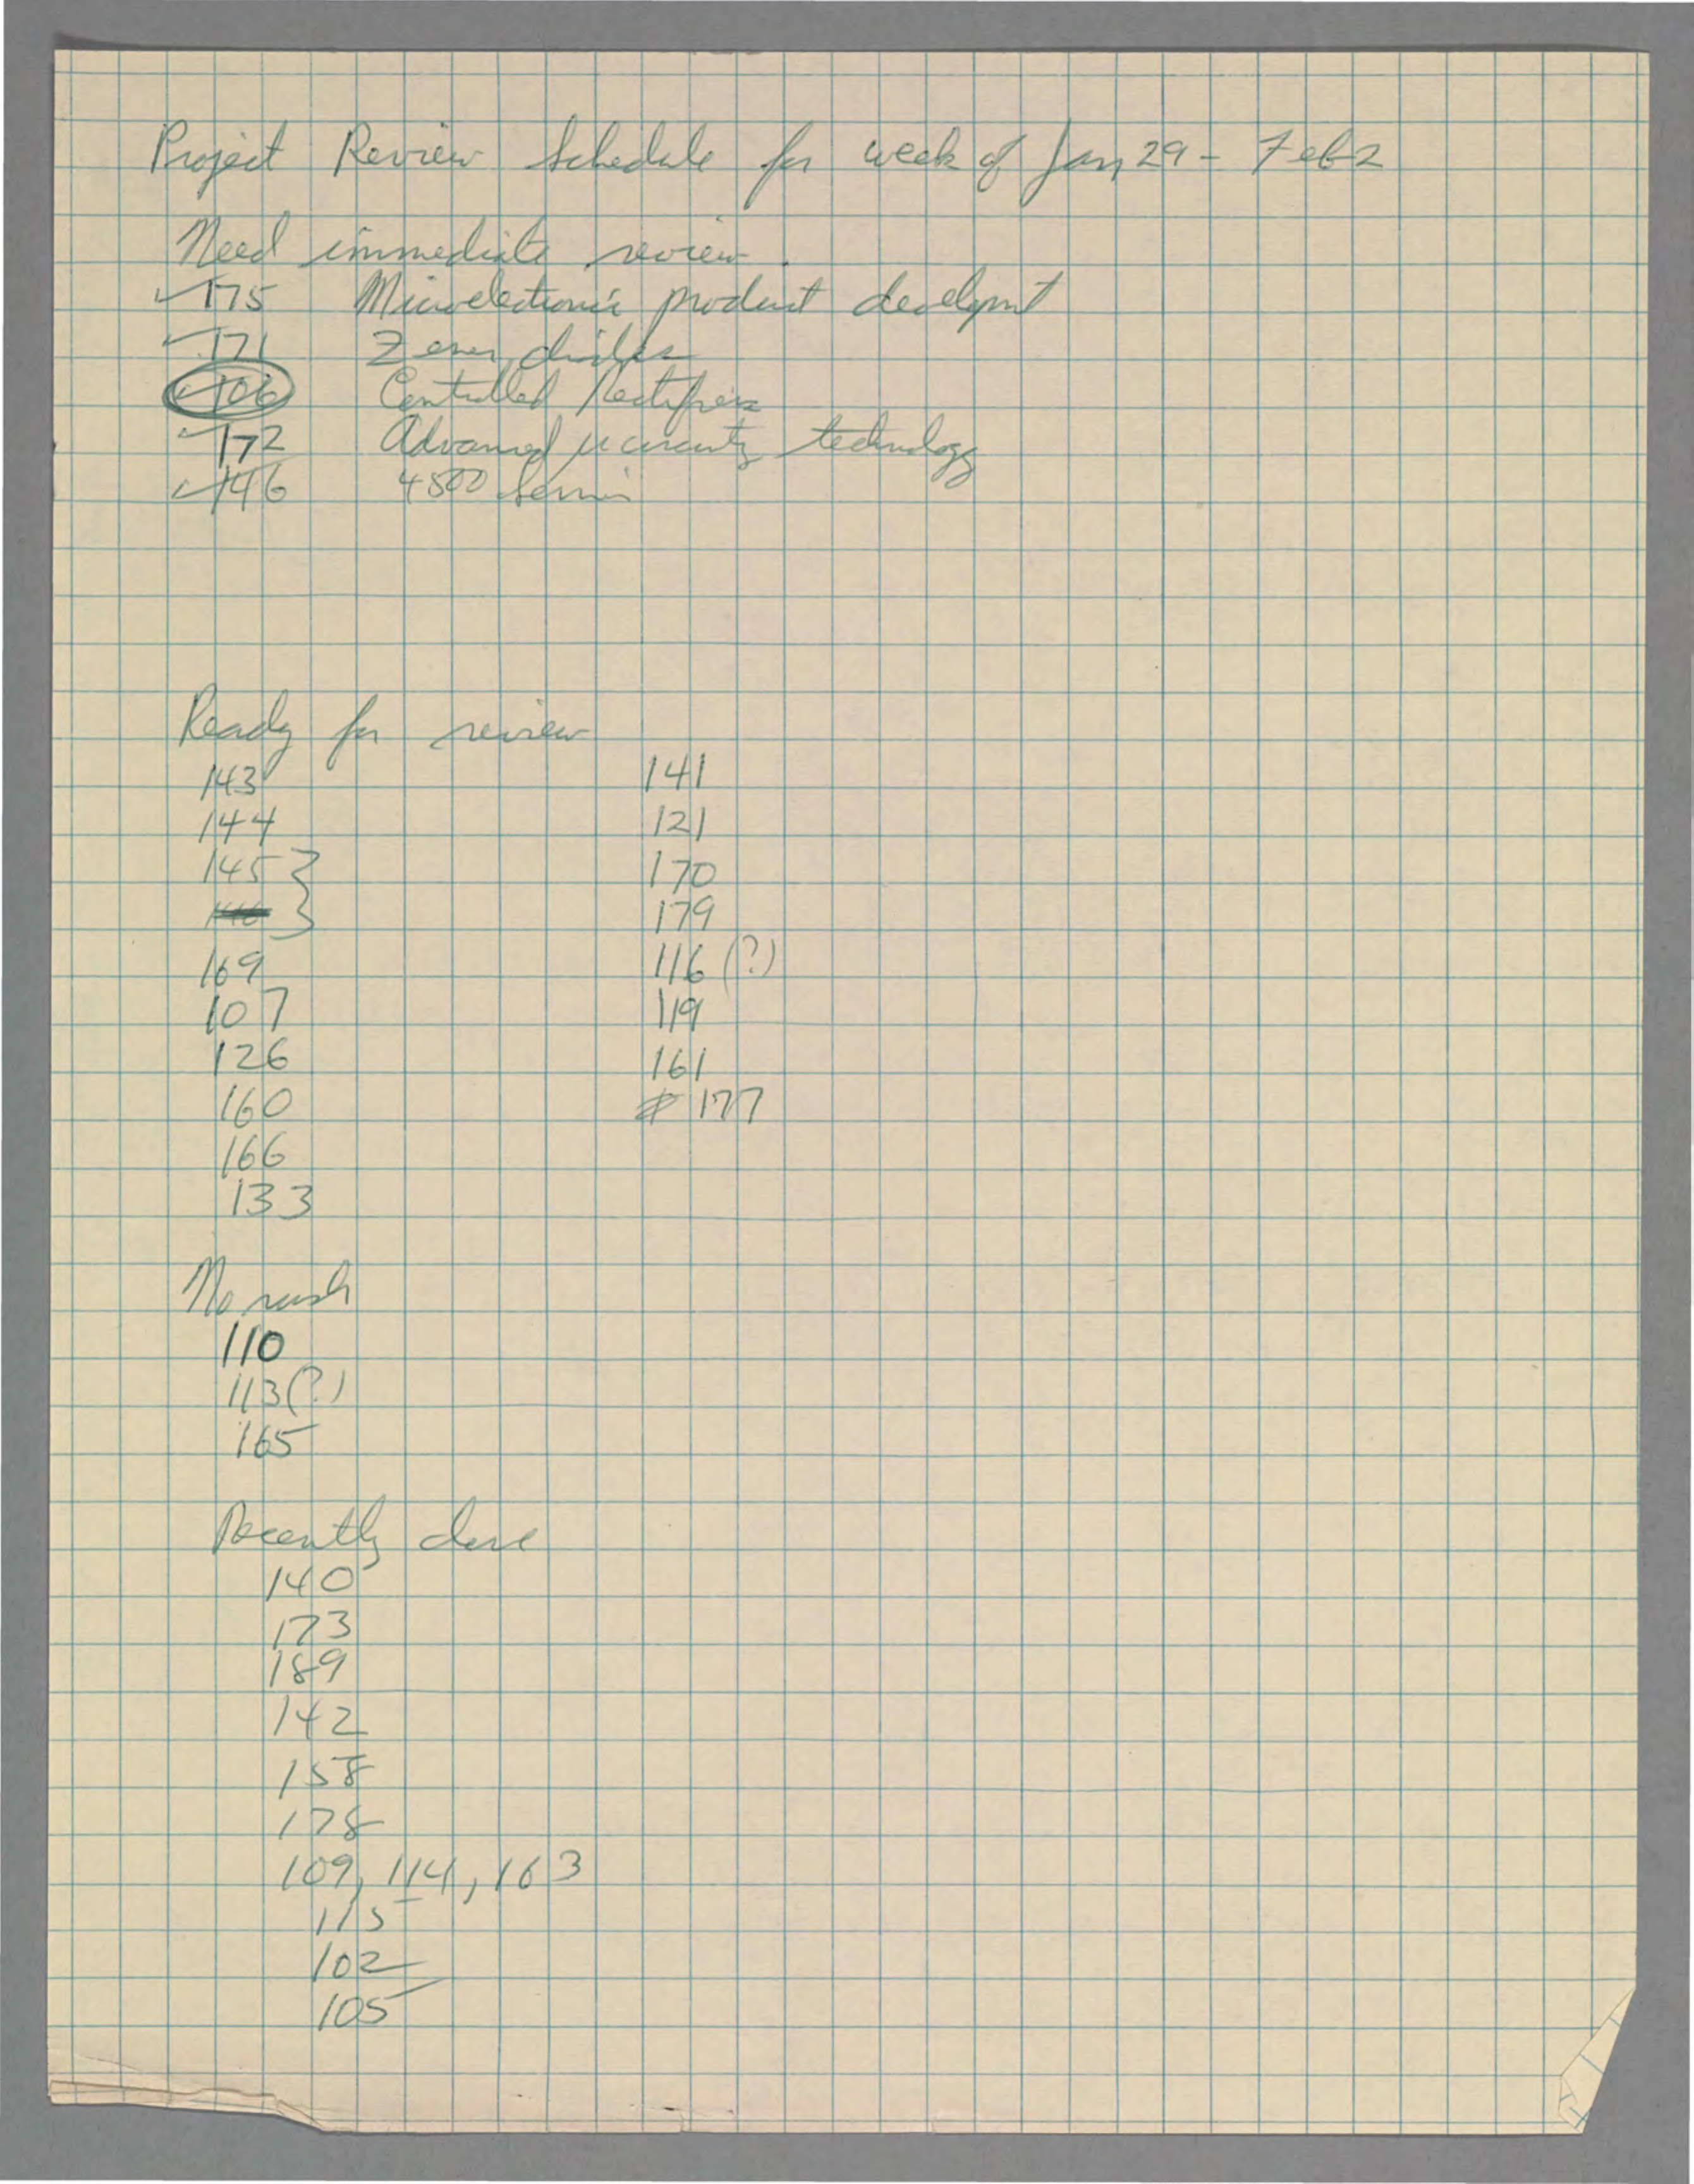 Project Review Schedule for week of Jan 29 - Feb 2
Need immediate review.
✓175 Microelectronic product developmt
✓171 Zener diodes
✓106 Controlled Rectifiers
✓172 Advanced µcircuits technology
✓146 4500 Series
Ready for review
143
144
145 }
169
107
126
160
166
133
141
121
170
179
116 (?)
119
161
# 177
No rush
110
113(?)
165
Recently done
140
173
189
142
158
178
109, 114, 163
115
102
105